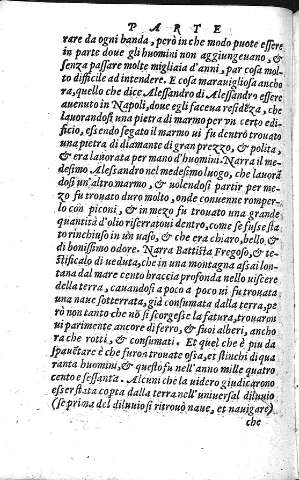 PARTE
rare da ogni banda, però in che modo puote essere
in parte doue gli huomini non aggiungeuano, &
senza passare molte migliaia d'anni, par cosa mol-
to difficile ad intendere. E cosa marauigliosa anchO
ra, quello che dice Alessandro di Alessandro essere
auenuto in Napoli, doue egli faceua residẽza, che
lauorandosi una pietra di marmo per vn certo edi-
ficio, essendo segato il marmo ui fu dentro trouato
una pietra di diamante di gran prezzo, & polita,
& era lauorata per mano d'huomini. Narra il me-
desimo Alessandro nel medesimo luogo, che lauorã
dosi un'altro marmo, & uolendosi partir per me-
zo fu trouato duro molto, onde conuenne romper-
lo con piconi, & in mezo fu trouato una grande
quantità d'olio riserratoui dentro, come se fusse sta
to rinchiuso in un uaso, & che era chiaro, bello, &
di bonissimo odore. Narra Battista Fregoso, & te-
stificalo di ueduta, che in una montagna assai lon-
tana dal mare cento braccia profonda nelle uiscere
della terra, cauandosi a poco a poco ui fu trouata
una naue sotterrata, già consumata dalla terra, pe
rò non tanto che nõ si scorgesse la fattura, trouaron
ui parimente ancore di ferro, & suoi alberi, ancho
ra che rotti, & consumati. Et quel che è piu da
spauẽtare è che furon trouate ossa, et stinchi di qua
ranta huomini, & questo fu nell'anno mille quattro
cento e sessanta. Alcuni che la uidero giudicarono
esser stata copta dalla terra nell'uniuersal diluuio
(se prima del diluuio si ritrouò naue, et nauigare)
che